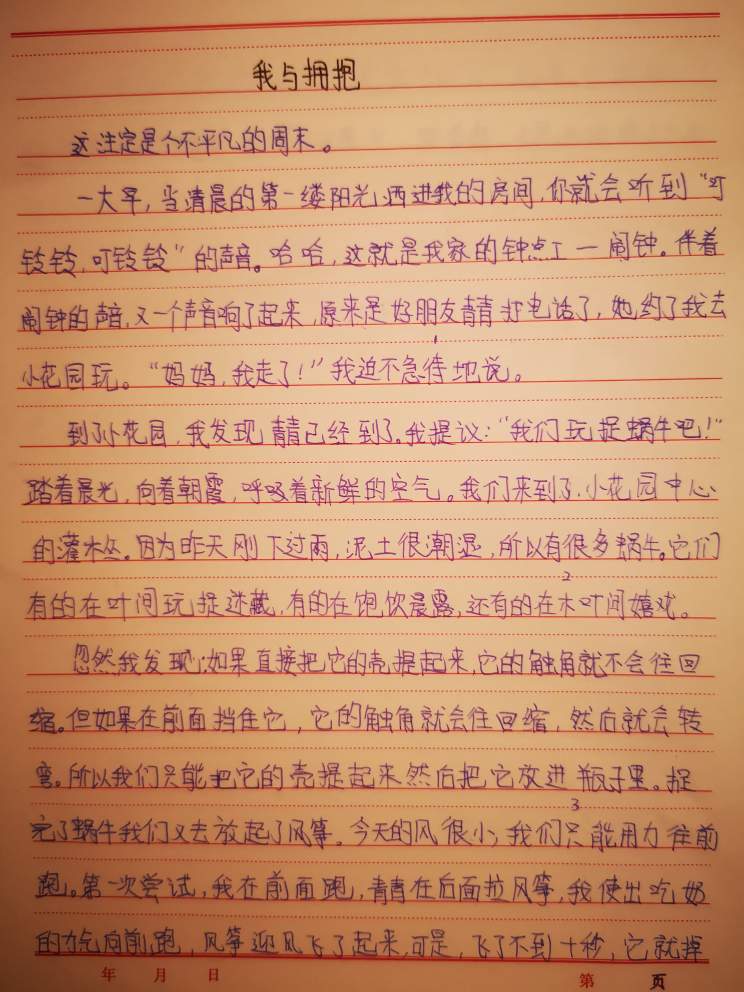 我与拥抱
这注定是个不平凡的周末。
一大早，当清晨的第一缕阳光洒进我的房间，你就会听到“叮
铃铃，叮铃铃”的声音。哈哈，这就是我家的钟点工一闹钟。伴着
闹钟的声音，又一个声音响了起来，原来是好朋友青青打电话了，她约了我去
小花园玩。“妈妈，我走了！”我迫不急待地说。
到了小花园，我发现青青已经到了。我提议：“我们玩捉蜗牛吧！”
踏着晨光，向着朝霞，呼吸着新鲜的空气。我们来到了小花园中心
的灌木丛。因为昨天刚下过雨，泥土很潮湿，所以有很多蜗牛。它们
2
有的在叶间玩捉迷藏，有的在饱饮晨露，还有的在木叶间嬉戏。
忽然我发现：如果直接把它的壳提起来，它的触角就不会往回
缩。但如果在前面挡住它，它的触角就会往回缩，然后就会转
弯。所以我们只能把它的壳提起来然后把它放进瓶子里。捉
3
完了蜗牛我们又去放起了风筝。今天的风很小，我们只能用力往前
跑。第一次尝试，我在前面跑，青青在后面拉风筝，我使出吃奶
的力气向前跑，风筝迎风飞了起来，可是，飞了不到十秒，它就掉
年 月 日 第 页